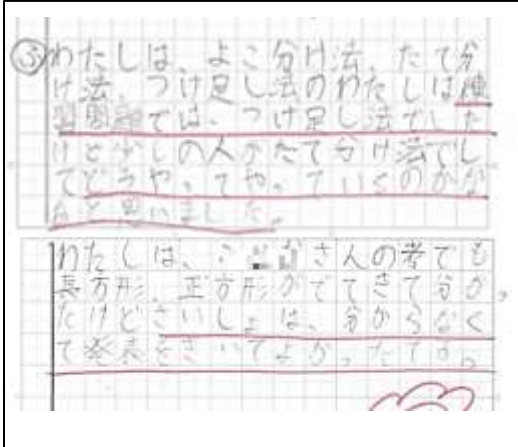 ふわたしは、よこ分け法、たて分
け法、つけ足し法のわたしは練
習問題では、つけ足し法でした
けど少しの人がたて分け法でし
てどうやってやっていくのかな
あと思いました。
わたしは、さんの考でも
長方形、正方形がでてきて分か
たけどさいしょは、分からなく
て発表をきいてよかったです。